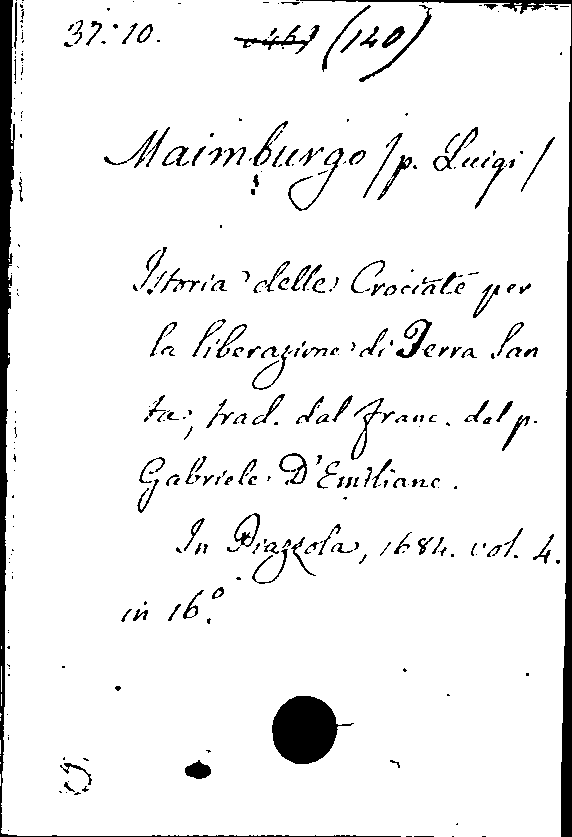 37.10. (120)
Maimburgo /p. Luigi/
Istoria delle Crociate per
la liberazione di Terra San
ta, trad. dal franc. del p.
Gabriele D'Emiliane.
In Piazzola, 1684. vol. 4.
in 16.º